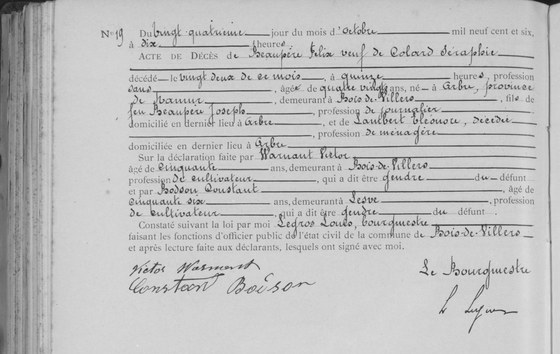 No 19 Du vingt quatrième jour du mois d'octobre mil neuf cent et six,
à dix heures
ACTE DE DÉCÈS de Beaupère Félix veuf de Colard Séraphie
décédé le vingt deux de ce mois, à quinze heures, profession
sans, âgé de quatre vingts ans, né à Arbre, province
de Namur, demeurant à Bois-de-Villers, fils de
feu Beaupère Joseph, profession de journalier
domicilié en dernier lieu à Arbre, et de Lambert Eléonore, décédée
, profession de ménagère
domiciliée en dernier lieu à Arbre
Sur la déclaration faite par Warnant Victor
âgé de cinquante ans, demeurant à Bois-de-Villers
profession de cultivateur, qui a dit être gendre du défunt
et par Bodson Constant, âgé de
cinquante six ans, demeurant à Lesve, profession
de cultivateur, qui a dit être gendre du défunt.
Constaté suivant la loi par moi Legros Louis, bourgmestre
faisant les fonctions d'officier public de l'état civil de la commune de Bois-de-Villers
et après lecture faite aux déclarants, lesquels ont signé avec moi.
Victor Warnant
Constant Bodson
Le Bourgmestre